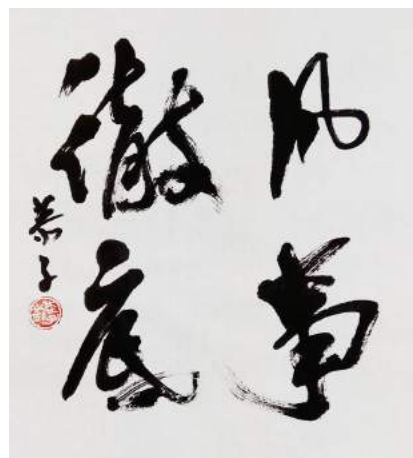 凡事
徹底
恭子